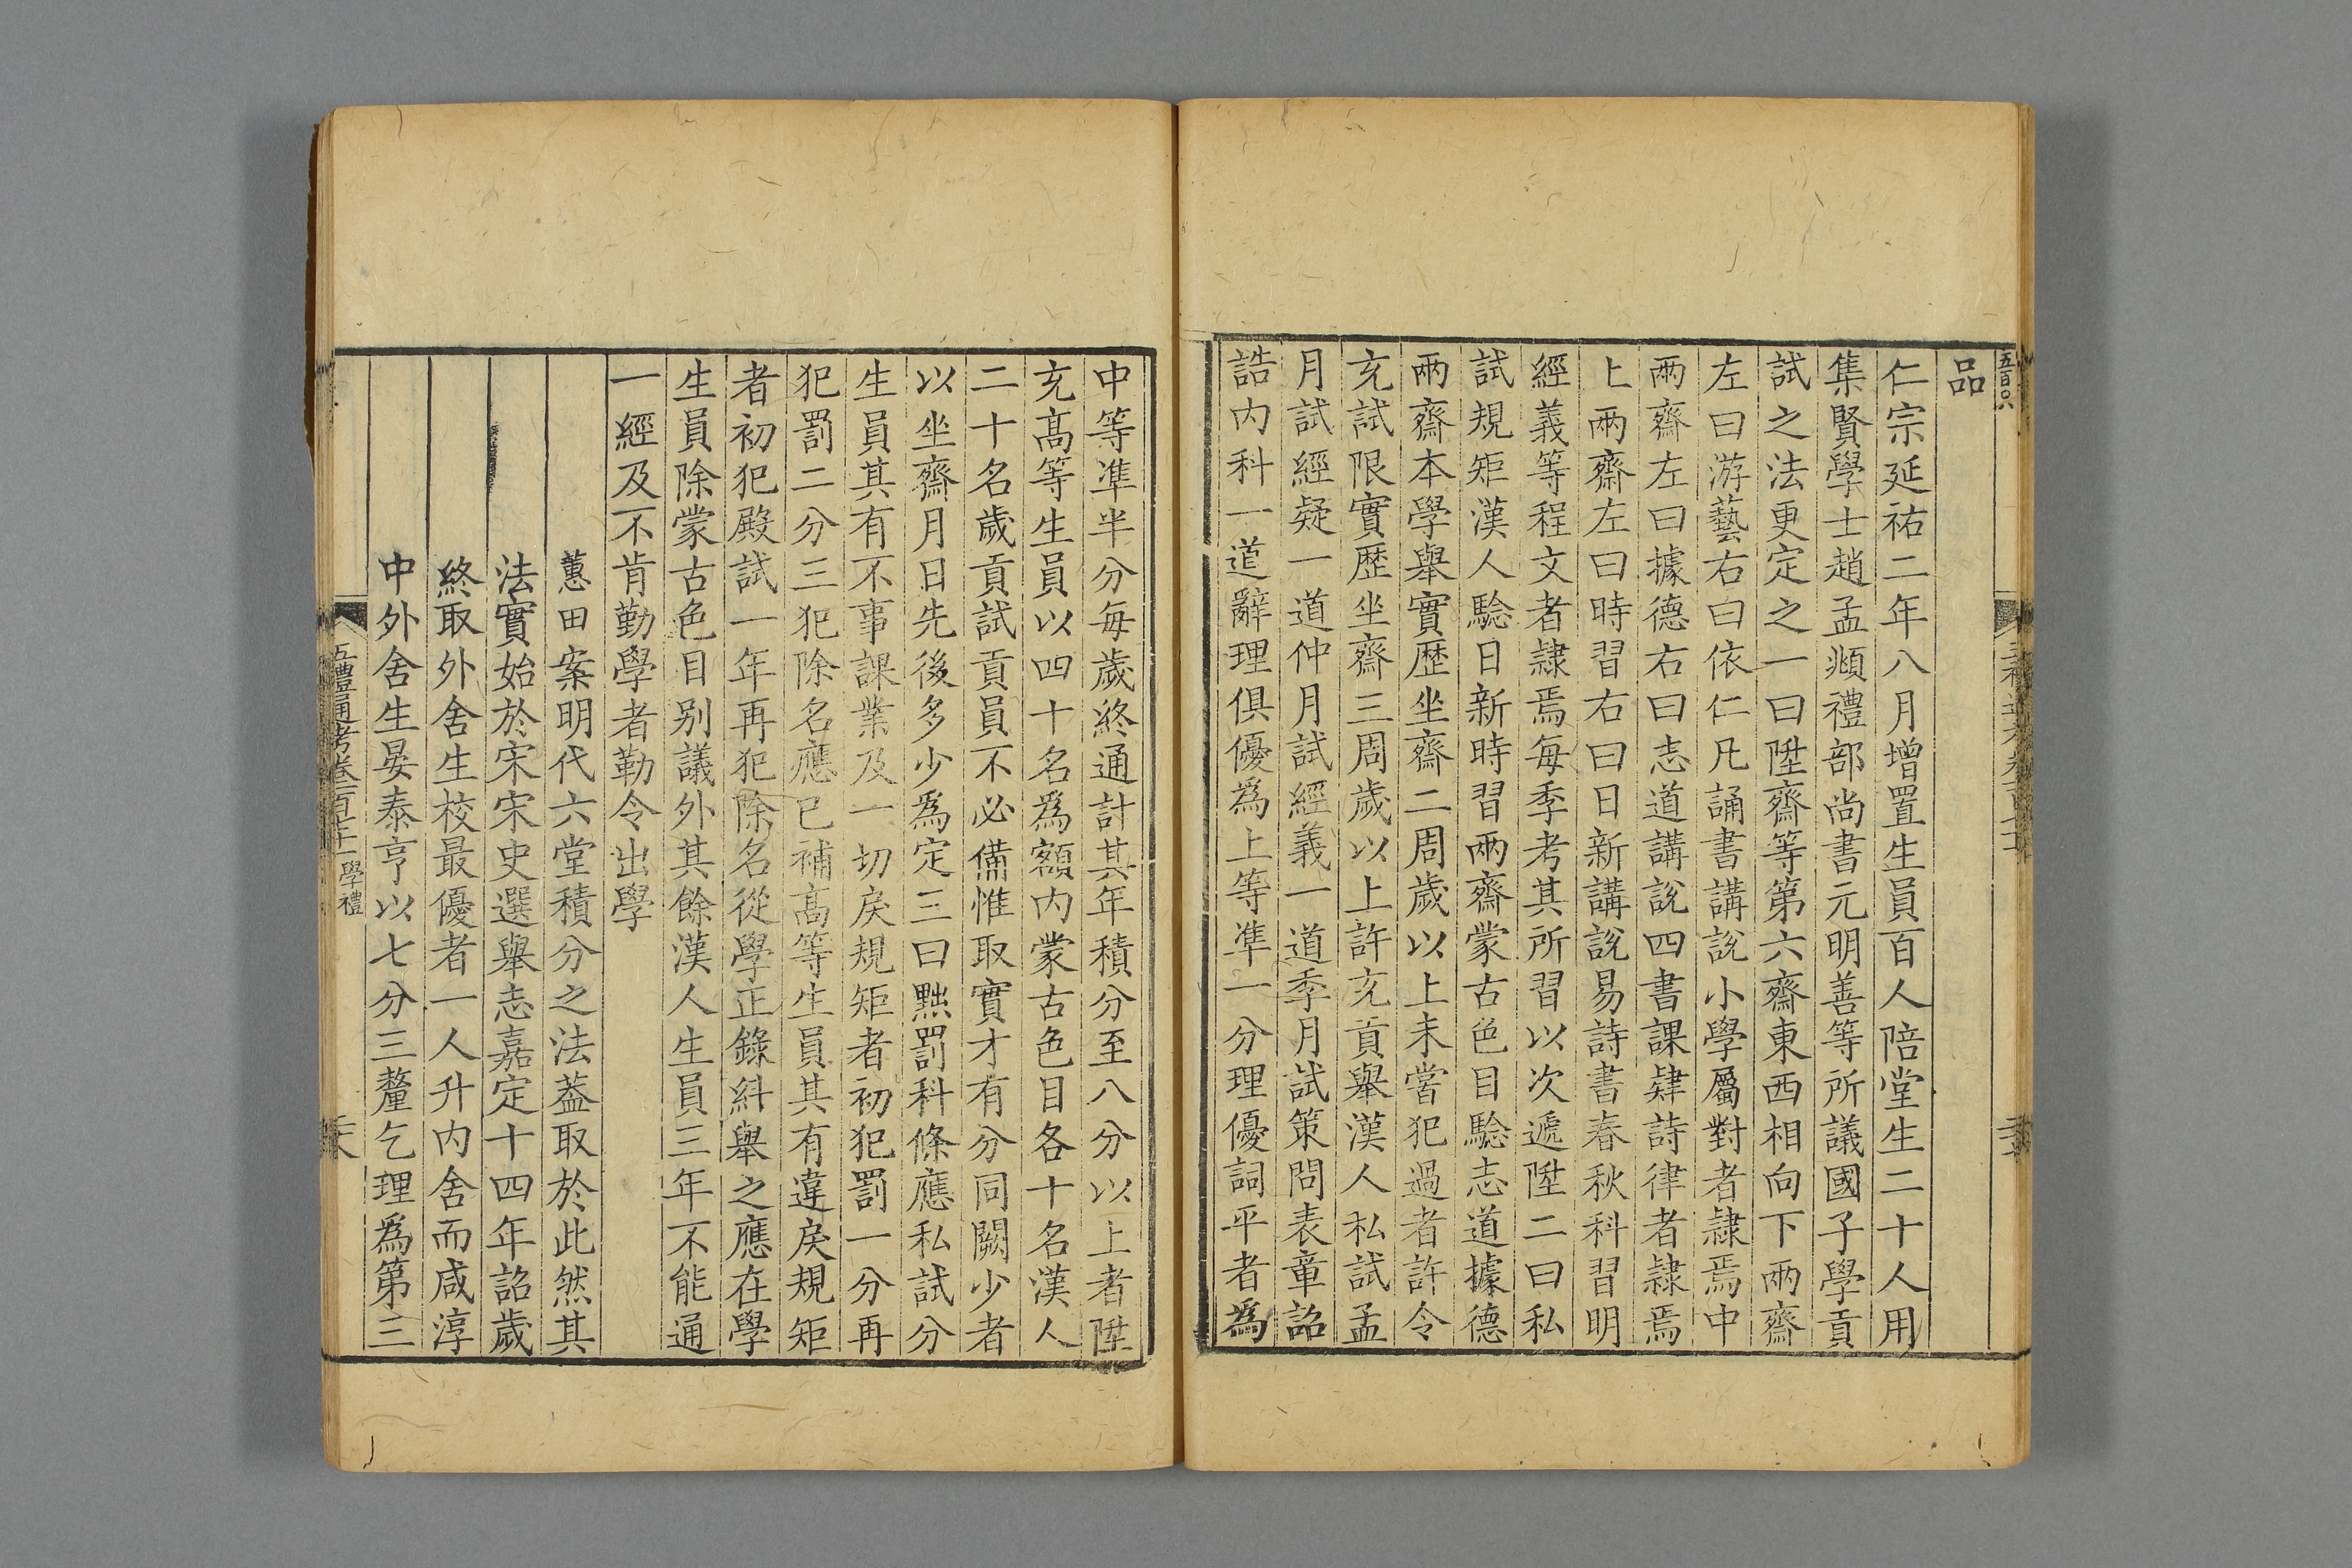 五百〇六
品
仁宗延祐二年八月增置生員百人陪堂生二十人用
集賢學士趙孟頫禮部尚書元明善等所議國子學貢
試之法更定之一曰陞齋等第六齋東西相向下兩齋
左曰游藝右曰依仁凡誦書講說小學屬對者隷焉中
兩齋左曰據德右曰志道講說四書課肄詩律者隷焉
上兩齋左曰時習右曰日新講說易詩書春秋科習明
經義等程文者隷焉每季考其所習以次遞陞二曰私
試規矩漢人驗日新時習兩齋蒙古色目驗志道據德
兩齋本學舉實歴坐齋二周歲以上未嘗犯過者許令
充試限實歴坐齋三周歲以上許充貢舉漢人私試孟
月試經疑一道仲月試經義一道季月試策問表章詔
誥内科一道辭理俱優爲上等凖一分理優詞平者爲
中等凖半分每歲終通計其年積分至八分以上者陞
充髙等生員以四十名爲額内蒙古色目各十名漢人
二十名歲貢試貢員不必備惟取實才有分同闕少者
以坐齋月日先後多少爲定三曰黜罰科條應私試分
生員其有不事課業及一切戾規矩者初犯罰一分再
犯罰二分三犯除名應已補髙等生員其有違戾規矩
者初犯殿試一年再犯除名從學正錄糾舉之應在學
生員除蒙古色目别議外其餘漢人生員三年不能通
一經及不肯勤學者勒令出學
蕙田案明代六堂積分之法葢取於此然其
法實始於宋宋史選舉志嘉定十四年詔歲
終取外舍生校最優者一人升内舍而咸淳
中外舍生晏泰亨以七分三釐乞理爲第三
五禮通考卷一百七十一 學禮